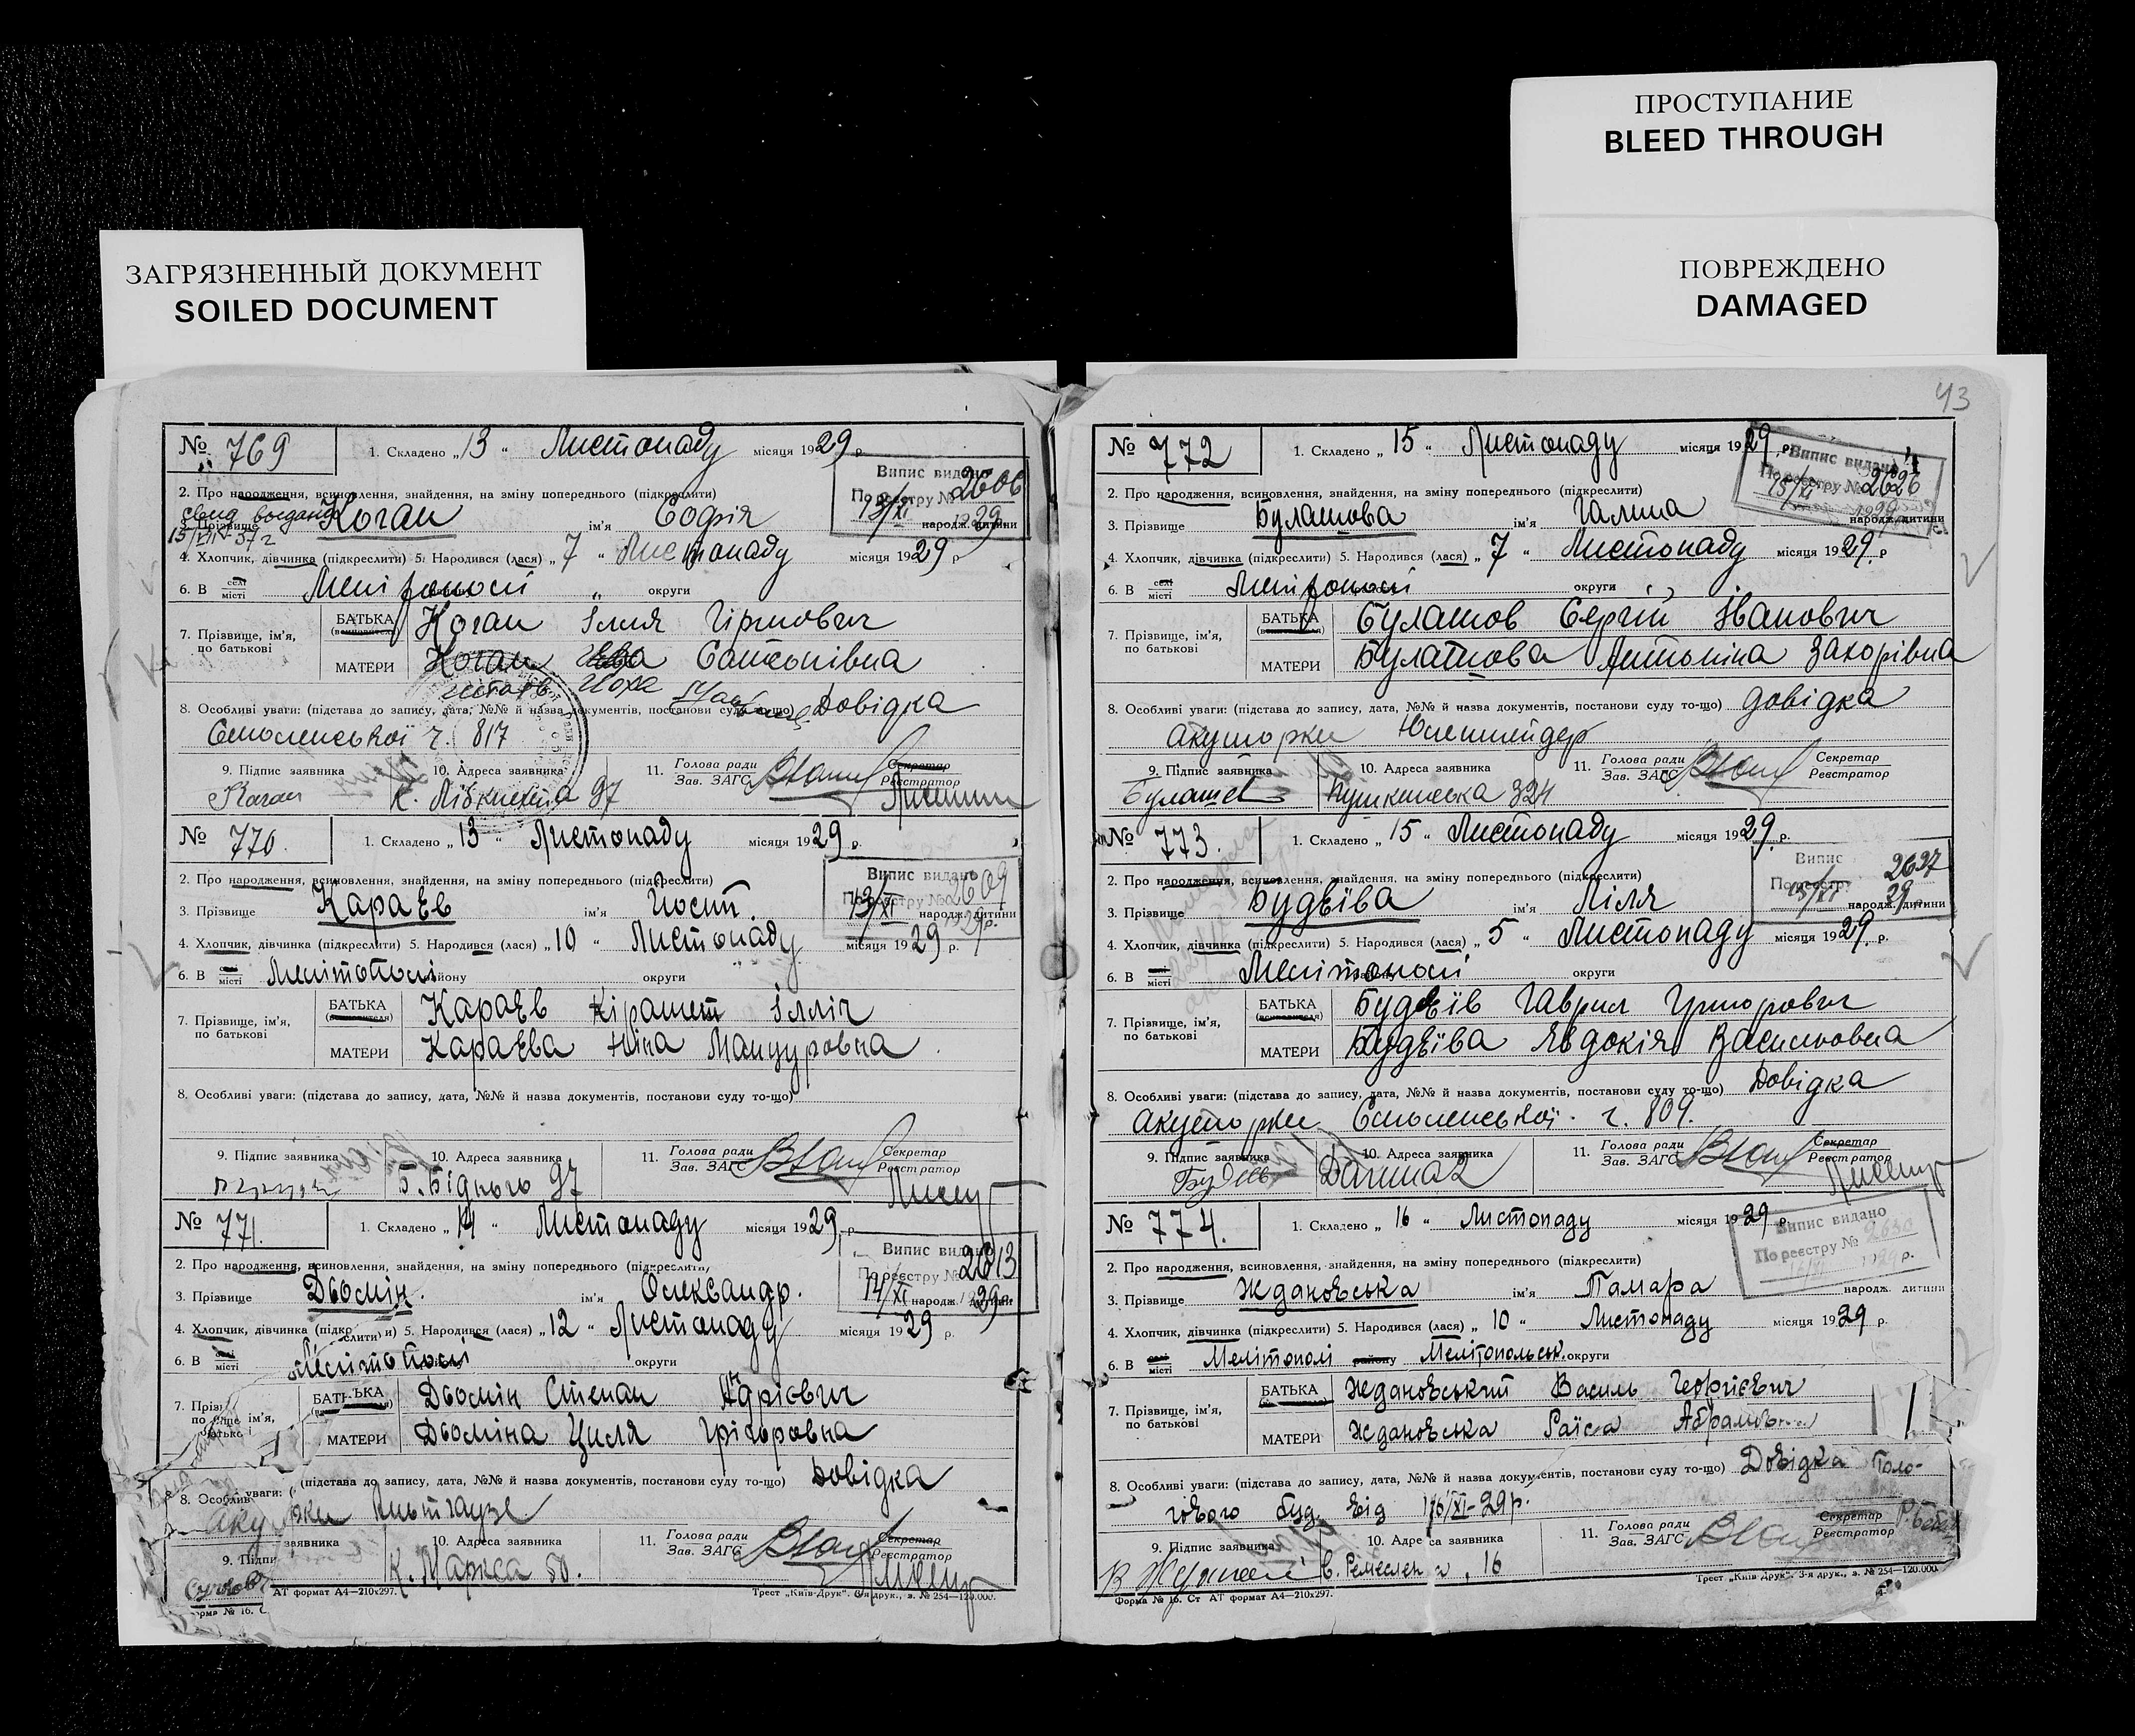 ПРОСТУПАНИЕ
BLEED THROUGH
ЗАГРЯЗНЕННЫЙ ДОКУМЕНТ
SOILED DOCUMENT
ПОВРЕЖДЕНО
DAMAGED
№ 769
1. Складено „13“ Листопаду місяця 1929 р.
Випис видано
По реєстру № 2606
13/XI 29
2. Про народження, всиновлення, знайдення, на зміну попереднього (підкреслити)
3. Прізвище Коган ім'я Софія народж. дитини
15/VII-37 г
4. Хлопчик, дівчинка (підкреслити) 5. Народився (лася) „7“ Листопаду місяця 1929 р
6. В селі місті Мелітополі округи
7. Прізвище, ім'я, по батькові
БАТЬКА Коган Ілля Гіршович
МАТЕРИ Коган Ева Самсонівна
8. Особливі уваги: (підстава до запису, дата, №№ й назва документів, постанови суду то-що) Довідка
Смоленської ч. 817
9. Підпис заявника
Коган
10. Адреса заявника
К. Лібкнехта 97
11. Голова ради
Зав. ЗАГС
Секретар
Реєстратор
№ 770.
1. Складено „13“ Листопаду місяця 1929 р.
Випис видано
По реєстру № 2609
13/XI 1929р.
2. Про народження, всиновлення, знайдення, на зміну попереднього (підкреслити)
3. Прізвище Караєв ім'я Йосип. народж. дитини
4. Хлопчик, дівчинка (підкреслити) 5. Народився (лася) „10“ Листопаду місяця 1929 р.
6. В селі місті Мелітополі району округи
7. Прізвище, ім'я, по батькові
БАТЬКА Караєв Ілліч
МАТЕРИ Караєва Ніна
8. Особливі уваги: (підстава до запису, дата, №№ й назва документів, постанови суду то-що)
9. Підпис заявника
10. Адреса заявника
Б. Бідного 97
11. Голова ради
Зав. ЗАГС
Секретар
Реєстратор
№ 771.
1. Складено „14“ Листопаду місяця 1929 р
Випис видано
По реєстру № 2613
14/XI 29р.
2. Про народження, всиновлення, знайдення, на зміну попереднього (підкреслити)
3. Прізвище Дьомін. ім'я Олександр. народж. дитини
4. Хлопчик, дівчинка 5. Народився (лася) „12“ Листопаду місяця 1929 р.
6. В селі місті Мелітополі округи
7. ім'я,
БАТЬКА Дьомін Степан
МАТЕРИ Дьоміна Циля Грігоровна
8. уваги: (підстава до запису, дата, №№ й назва документів, постанови суду то-що) Довідка
заявника
10. Адреса заявника
К. Маркса 50.
11. Голова ради
Зав. ЗАГС
Секретар
Реєстратор
АТ формат А4—210х297.
Трест „Київ-Друк“. 3-я друк., з. № 254—120.000.
43
№ 772
1. Складено „15“ Листопаду місяця 1929 р
Випис видано
По реєстру № 2626
15/XI 1929
2. Про народження, всиновлення, знайдення, на зміну попереднього (підкреслити)
3. Прізвище Булашова ім'я Галина народж. дитини
4. Хлопчик, дівчинка (підкреслити) 5. Народився (лася) „7“ Листопаду місяця 1929. р
6. В селі місті Мелітополі округи
7. Прізвище, ім'я, по батькові
БАТЬКА Булашов Сергій Іванович
МАТЕРИ Булашова Антоніна Захорівна
8. Особливі уваги: (підстава до запису, дата, №№ й назва документів, постанови суду то-що) довідка
акушорки
9. Підпис заявника
Булашов
10. Адреса заявника
Пушкинська 324
11. Голова ради
Зав. ЗАГС
Секретар
Реєстратор
№ 773.
1. Складено „15“ Листопаду місяця 1929. р.
Випис
По реєстру 2627
15/XI 29
2. Про народження, всиновлення, знайдення, на зміну попереднього (підкреслити)
3. Прізвище Будєїва ім'я Ліля народж. дитини
4. Хлопчик, дівчинка (підкреслити) 5. Народився (лася) „5“ Листопаду місяця 1929. р.
6. В селі місті Мелітополі округи
7. Прізвище, ім'я, по батькові
БАТЬКА Будєїв Гаврил Григорович
МАТЕРИ Будєїва Явдокія Василовна
8. Особливі уваги: (підстава до запису, дата, №№ й назва документів, постанови суду то-що) Довідка
Акушорки Смоленської. ч. 809.
9. Підпис заявника
10. Адреса заявника
11. Голова ради
Зав. ЗАГС
Секретар
Реєстратор
№ 774.
1. Складено „16“ Листопаду місяця 1929 р
Випис видано
По реєстру № 2630
2. Про народження, всиновлення, знайдення, на зміну попереднього (підкреслити)
3. Прізвище Ждановська ім'я Тамара народж. дитини
4. Хлопчик, дівчинка (підкреслити) 5. Народився (лася) „10“ Листопаду місяця 1929 р.
6. В селі місті Мелітополі району Мелітопольськ. округи
7. Прізвище, ім'я, по батькові
БАТЬКА Ждановський Василь Георгієвич
МАТЕРИ Ждановська Раїса
8. Особливі уваги: (підстава до запису, дата, №№ й назва документів, постанови суду то-що) Довідка Поло-
гового буд. від 16/XI-29р.
9. Підпис заявника
10. Адреса заявника
16
11. Голова ради
Зав. ЗАГС
Секретар
Реєстратор
Форма № 16. Ст АТ формат А4—210х297.
Трест „Київ Друк“. 3-я друк., з. № 254—120.000.